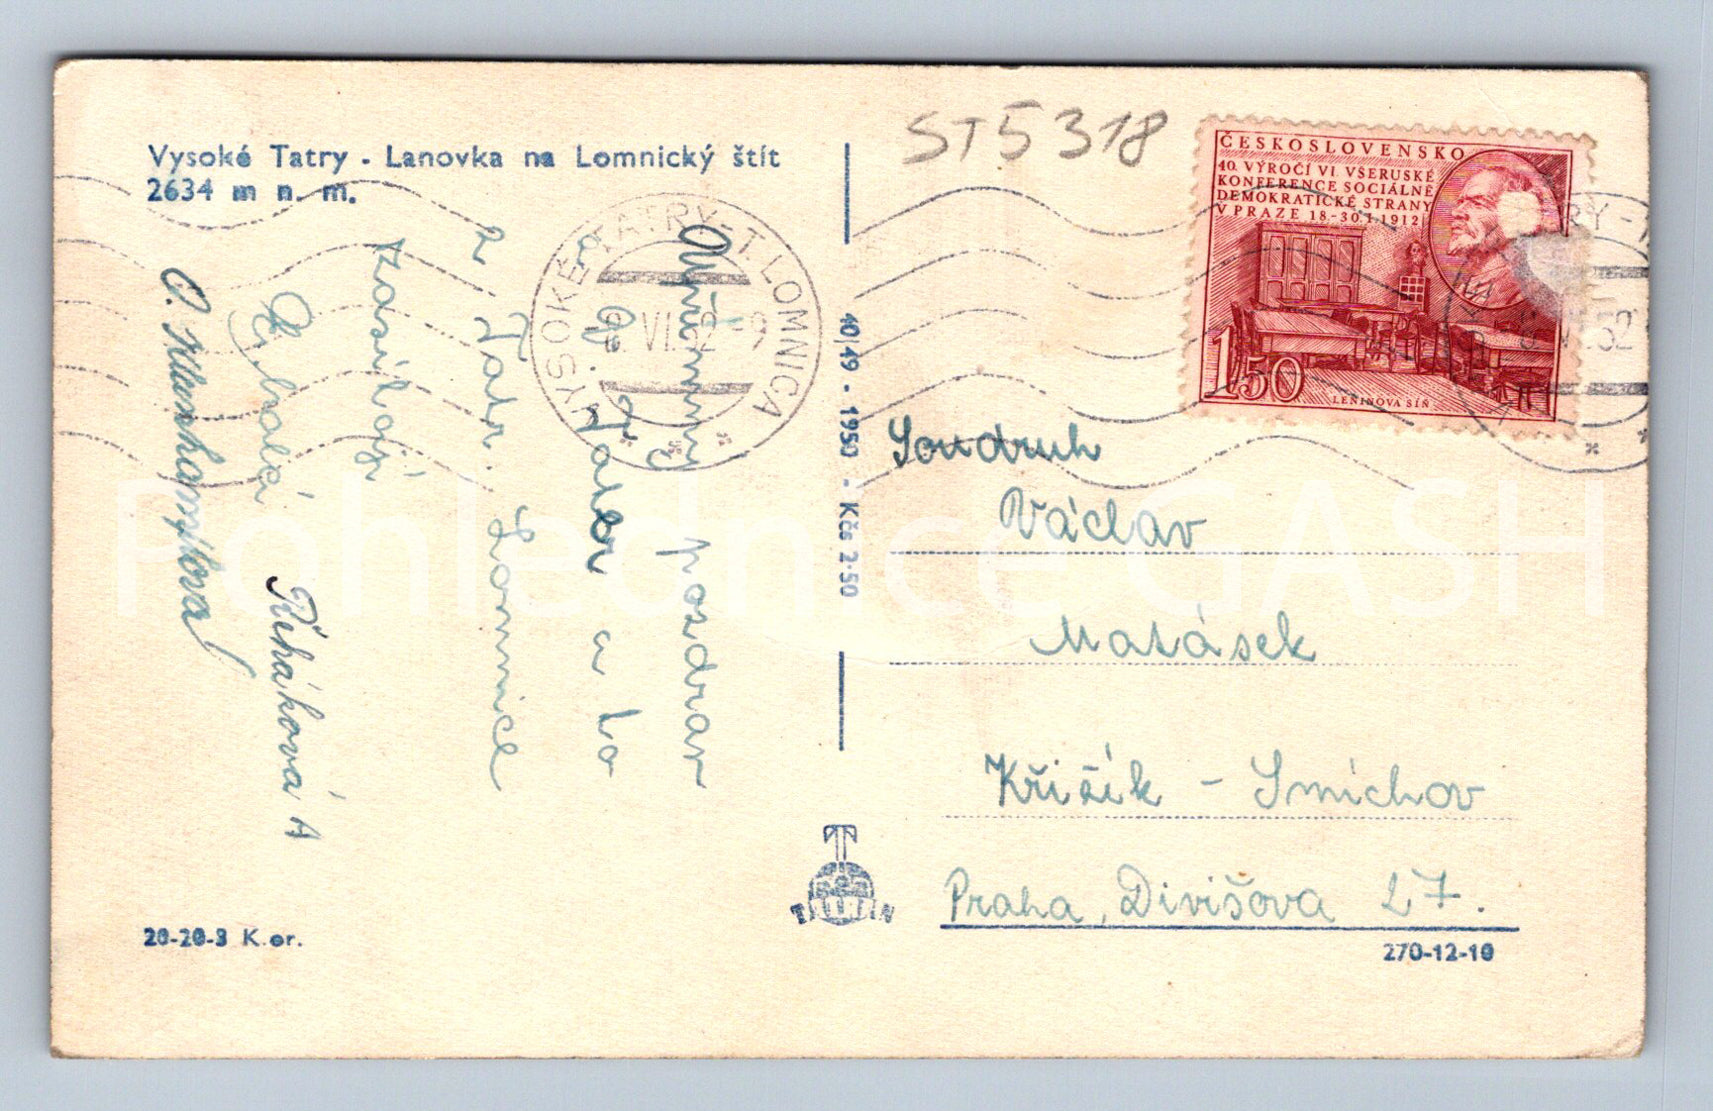 Vysoké Tatry - Lanovka na Lomnický štít
2634 m n. m.
Upřímný pozdrav
z V. Tater a to
z Tatr. Lomnice
zasílají
Ehalá Řeháková A
O. Munhamrlová
20-20-3 K. or.
40/49 - 1950 - Kčs 2·50
TATRAN
ST5318
ČESKOSLOVENSKO
40. VÝROČÍ VI. VŠERUSKÉ
KONFERENCE SOCIÁLNĚ
DEMOKRATICKÉ STRANY
V PRAZE 18-30.I.1912
1,50
LENINOVA SÍŇ
VYSOKÉ TATRY-T. LOMNICA
VI.52-9
Soudruh
Václav
Matásek
Křižík - Smíchov
Praha, Divišova 27.
270-12-10
Pohlednice GASH